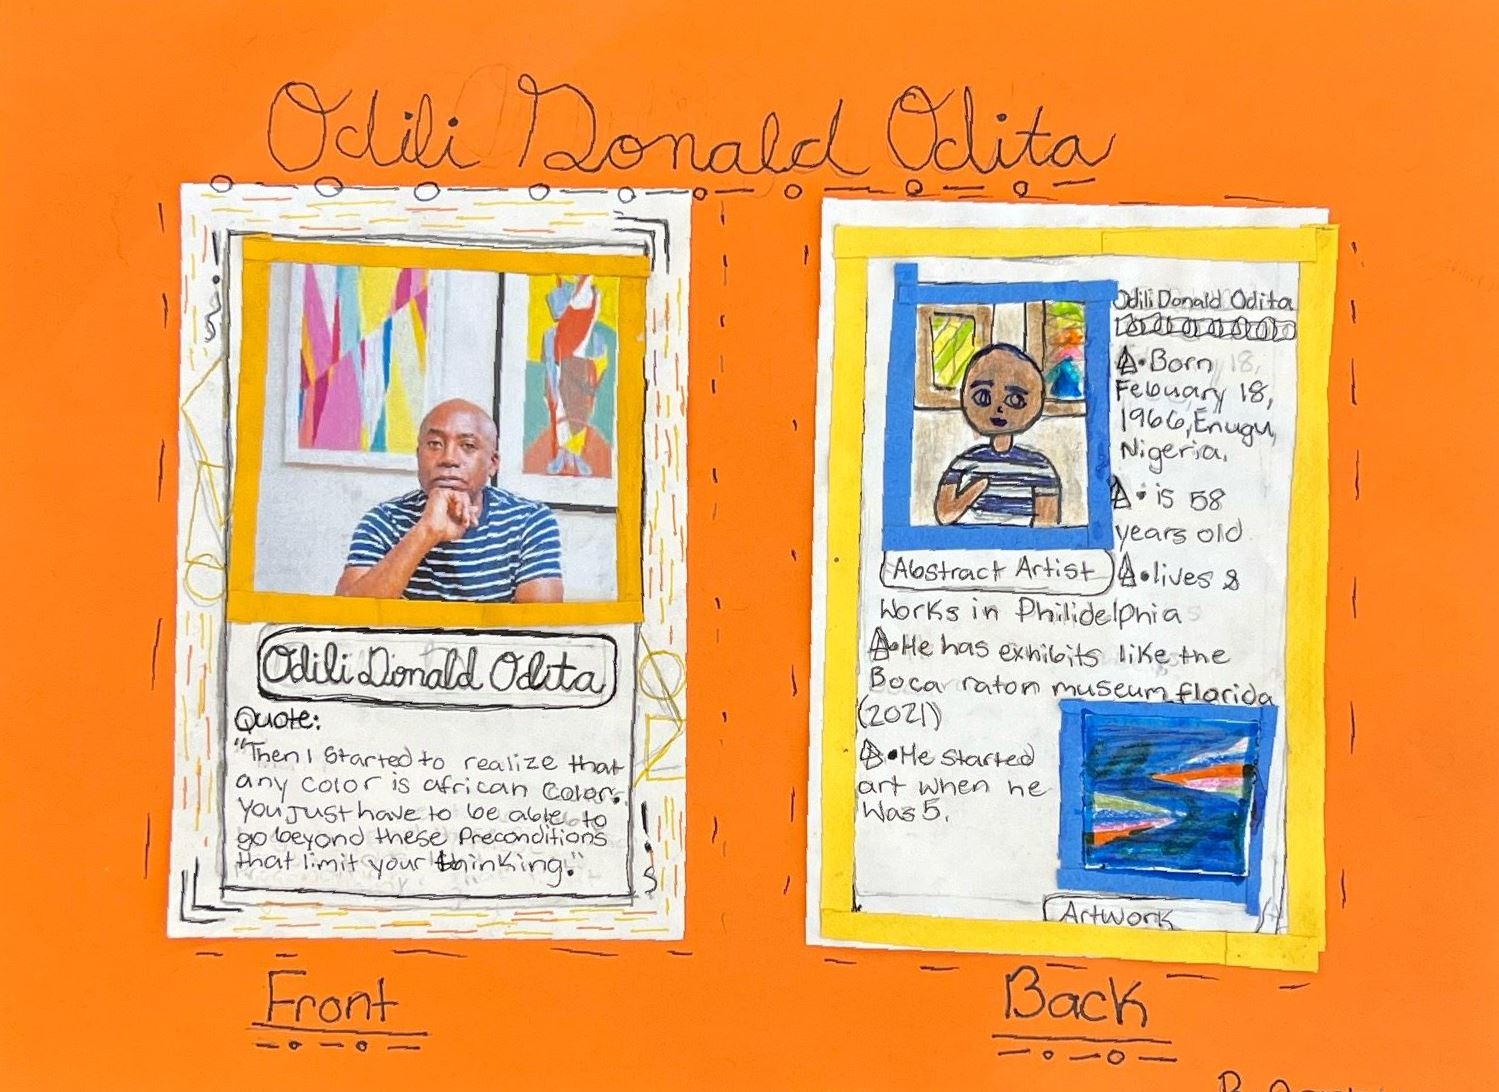 Odili Donald Odita
Odili Donald Odita
Quote:
"Then I Started to realize that
any color is african color.
You Just have to be able to
go beyond these Preconditions
that limit your thinking."
Front
Odili Donald Odita
Born 18,
Febuary 18,
1966, Enugu,
Nigeria.
is 58
years old
Abstract Artist
lives &
Works in Philidelphia
He has exhibits like the
Boca raton museum florida
(2021)
He Started
art when he
Was 5.
Artwork
Back